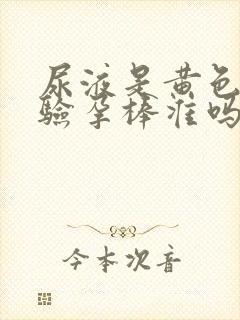 尿液是黄色
验孕棒准吗
今本次音